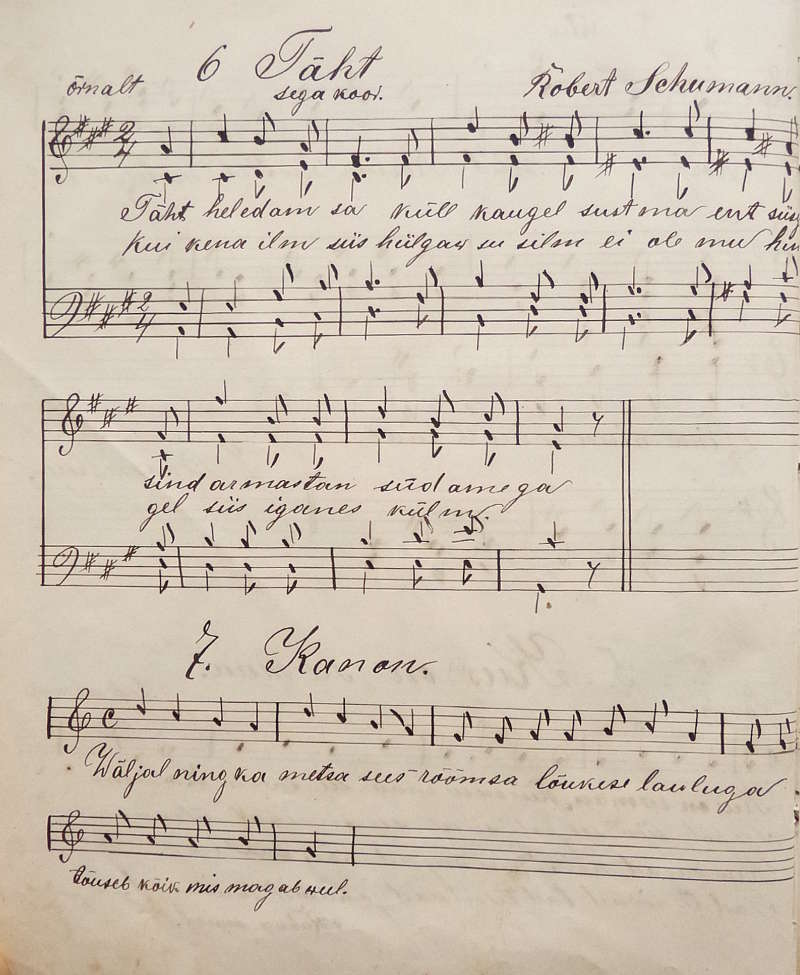 6 Täht
örnalt sega koor. Robert Schumann.
2/4
Täht heledam sa küll kaugel sust ma ent
kui kena ilm siis hülgaw su silm ei ole mu
2/4
sind armastan südamega
gel siis iganes külm.
7. Kanon.
Wäljal ning ka metsa sees rõõmsa lõukese lauluga
tõuseb kõik mis magab